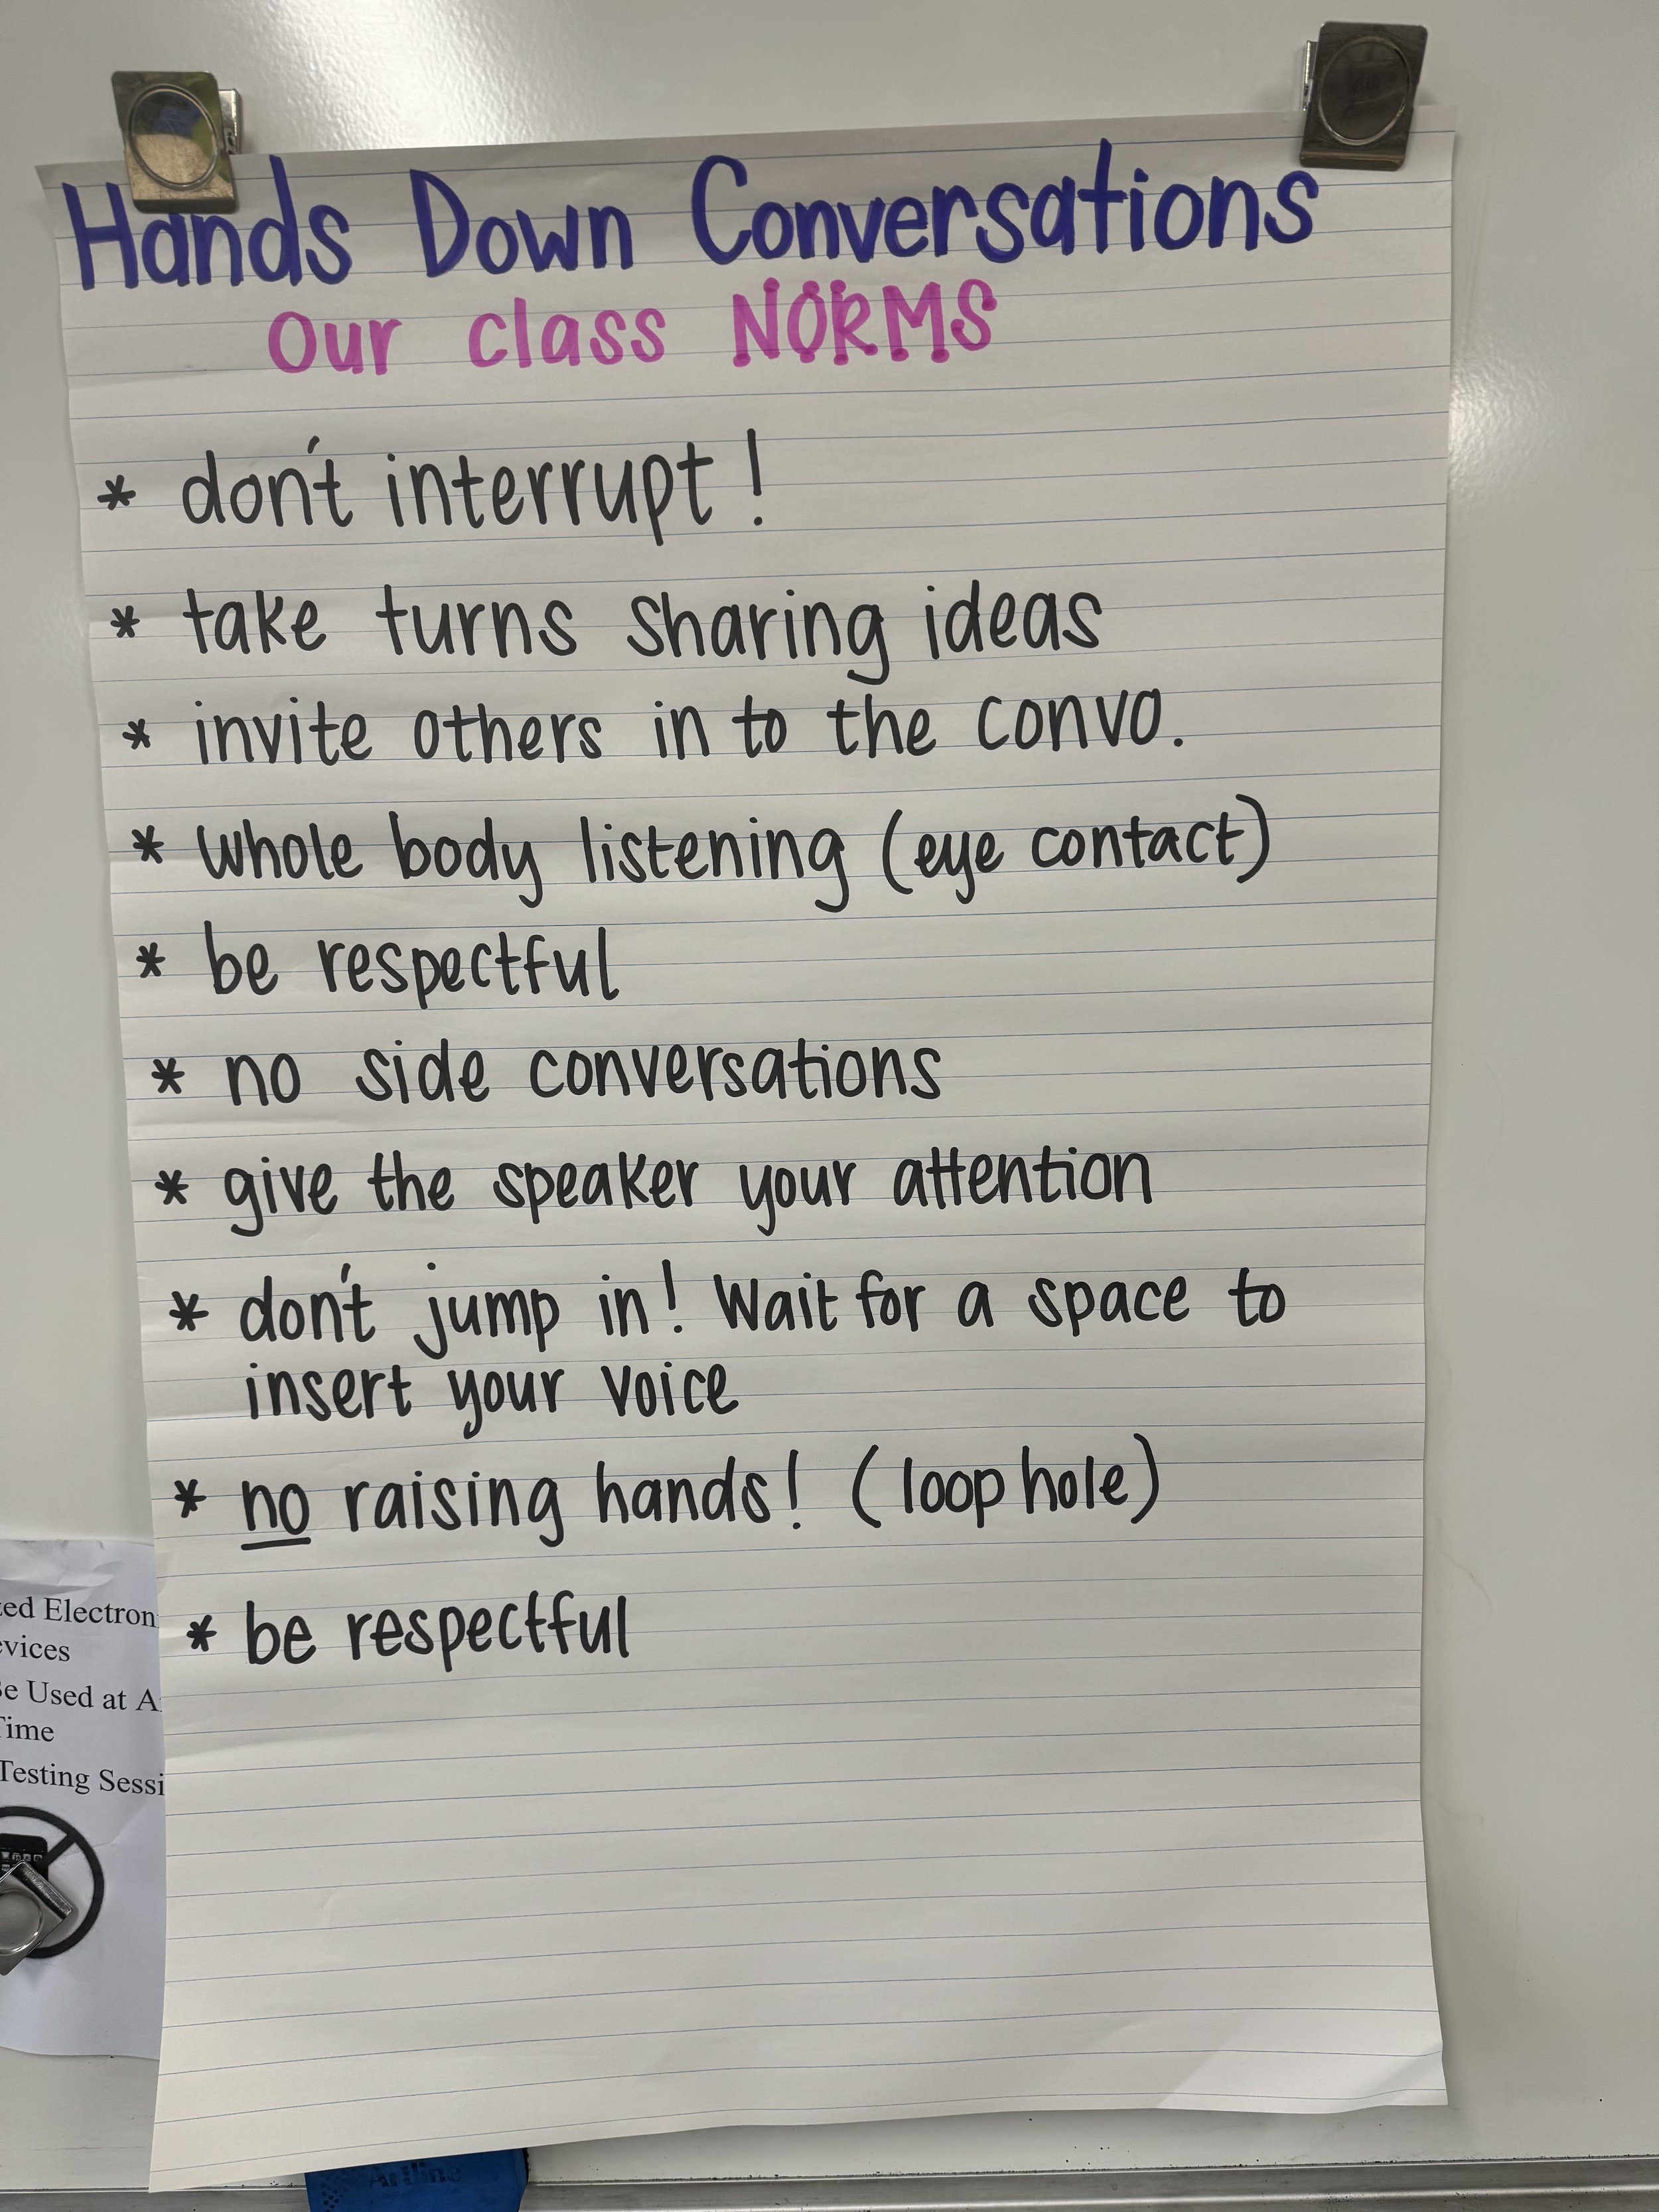 Hands Down Conversations
Our class NORMS
* don't interrupt!
* take turns sharing ideas
* invite others in to the convo.
* whole body listening (eye contact)
* be respectful
* no side conversations
* give the speaker your attention
* don't jump in! Wait for a space to
insert your voice
* no raising hands! (loop hole)
* be respectful
Used at
Time
Testing
Artline